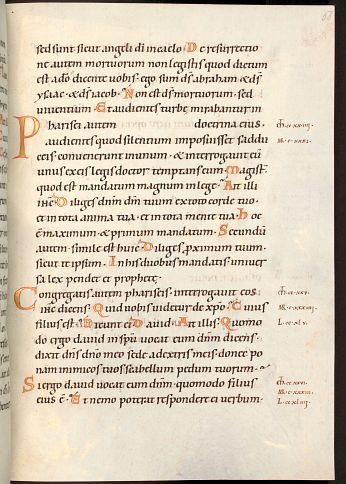 sed sunt sicut angeli dī in caelo. De resurrectio
ne autem mortuorum non legistis quod dictum
est a dō dicente uobis. ego sum dſ abraham. & dſ
ysaac. & dſ iacob. Non est dſ mortuorum. sed
uiuentium. Et audientes turbę mirabantur in
Pharisei autem doctrina eius.
audientes quod silentium imposuisset saddu
ceis conuenerunt in unum. & interrogauit eū
unus ex eis legis doctor temptans eum. Magist.
quod est mandatum magnum in lege. At illi
ihc. Diliges dnm dm tuum ex toto corde tuo.
et in tota anima tua. et in tota mente tua. hoc
ē maximum. & primum mandatum. Secundū
autem. simile est huic. Diliges pximum tuum.
sicut te ipsum. In his duobus mandatis uniuer
sa lex pendet et prophetę.
Congregatis autem phariseis. interrogauit eos
ihc dicens. Quid uobis uidetur de xpō. Cuius
filius est. Dicunt ei. Dauid. Ait illis. Quomo
do ergo dauid in spū uocat eum dnm dicens.
dixit dnſ dnō meo sede a dextris meis. donec po
nam inimicos tuos scabellum pedum tuorum.
Si ergo dauid uocat eum dnm. quomodo filius
eius ē. Et nemo poterat respondere ei uerbum.